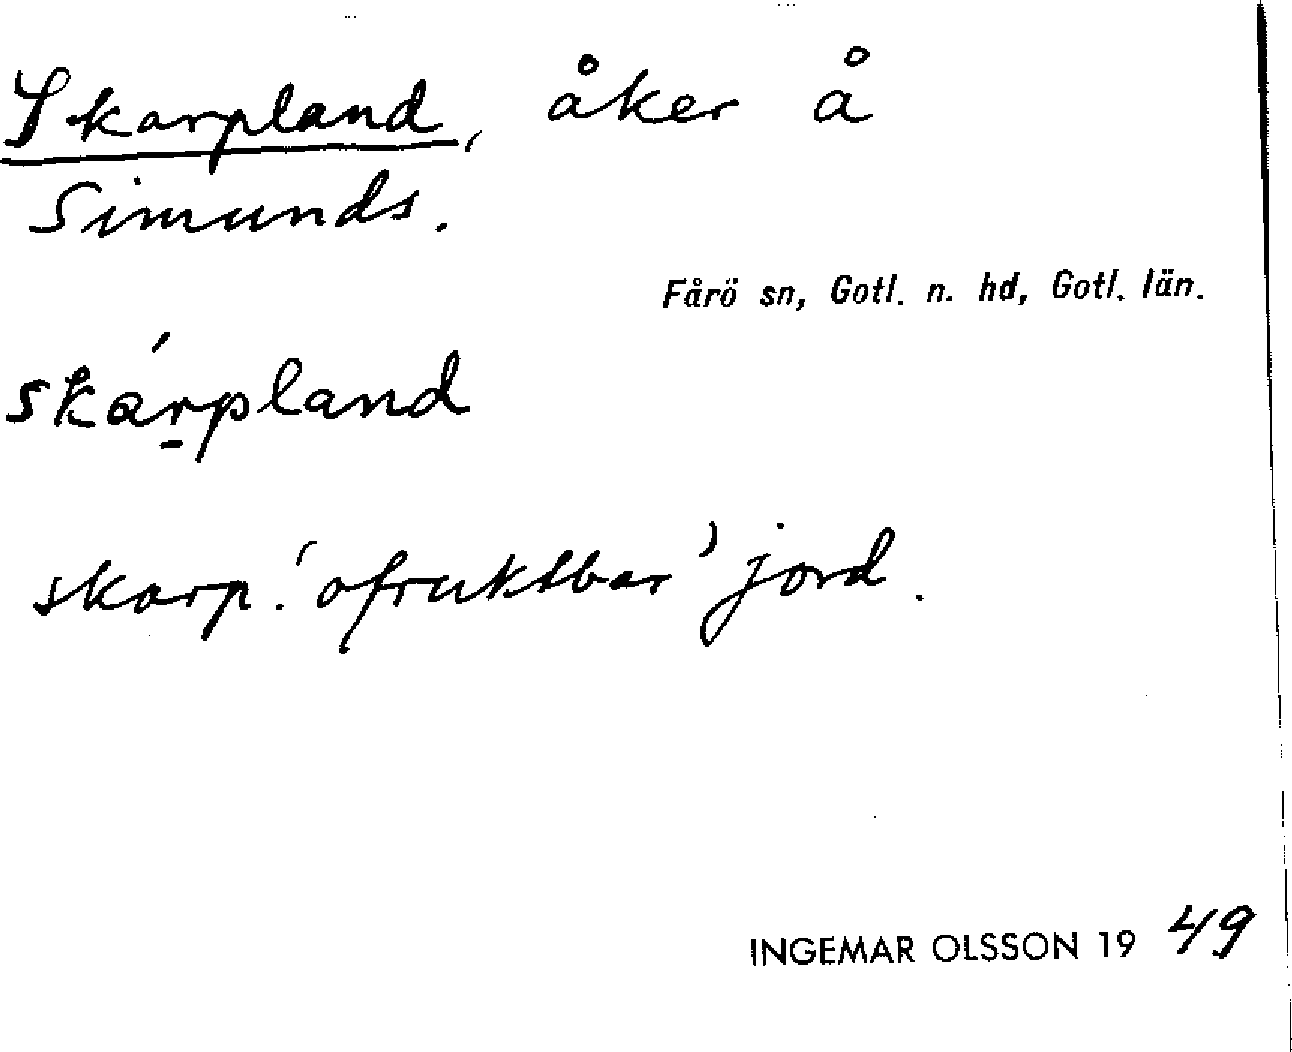 Skarpland, åker å
Simunds.
Fårö sn, Gotl. n. hd, Gotl. län.
skárp̱land
skarp. 'ofruktbar' jord.
INGEMAR OLSSON 19 49